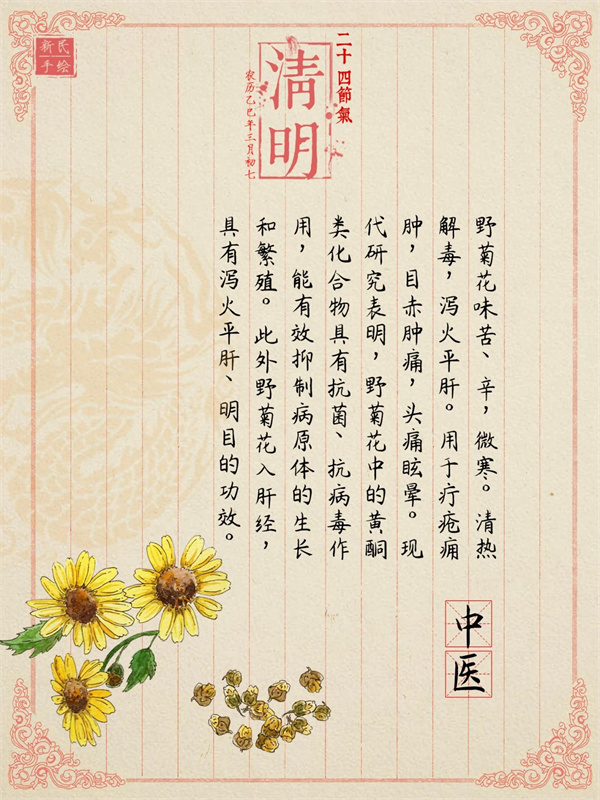 新民
手绘
二十四節氣
清明
农历乙巳年三月初七
野菊花味苦、辛，微寒。清热
解毒，泻火平肝。用于疔疮痈
肿，目赤肿痛，头痛眩晕。现
代研究表明，野菊花中的黄酮
类化合物具有抗菌、抗病毒作
用，能有效抑制病原体的生长
和繁殖。此外野菊花入肝经，
具有泻火平肝、明目的功效。
中医